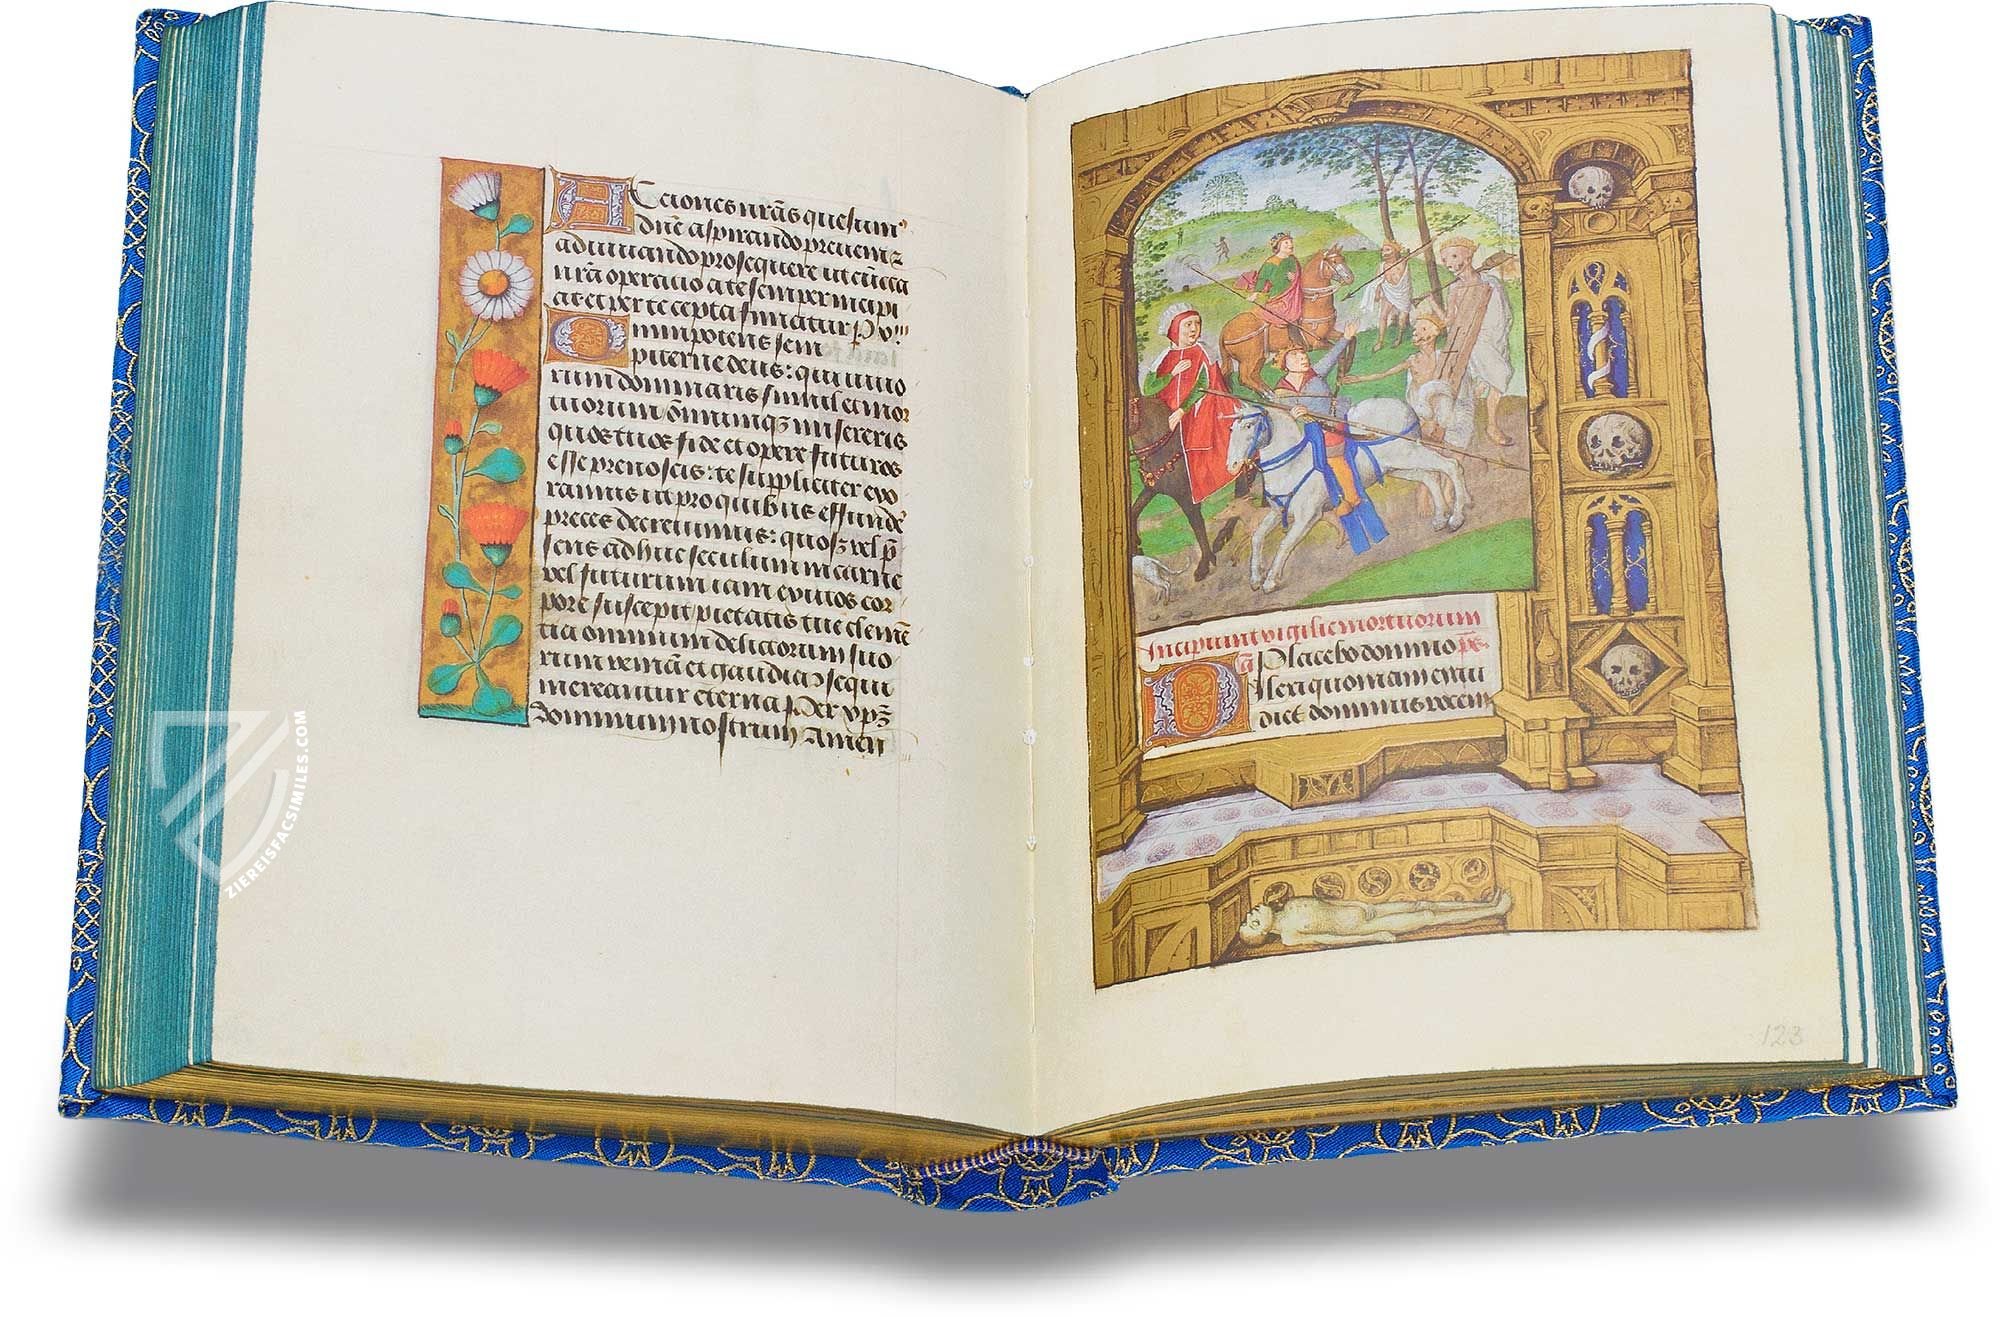 Actiones nr̄as quesum'
dn̄e aspirando preueni ⁊
adiuuando prosequere ut cūcta
nr̄a operacio a te semper incipi
at et per te cepta finiatur P v'''
Omnipotens sem
piterne deus: qui uiuo
rum dominaris simul et mor
tuorum om̄niumqꝫ misereris
quos tuos fide et opere futuros
esse prenoscis: te suppliciter exo
ramus ut pro quibus effunde
preces decreuimus: quosꝫ vel p̄
sens adhuc seculum in carne
vel futurum iam exutos cor
pore suscepit pietatis tue clemē
tia omnium delictorum suo
rum veniā et gaudia ꝯsequi
mereantur eterna Per xp̄ꝫ
dominum nostrum Amen
Incipiunt vigilie mortuorum
ā Placebo domino p̄s.
Dilexi quoniam exau
diet dominus vocem
123
ZIEREISFACSIMILES.COM